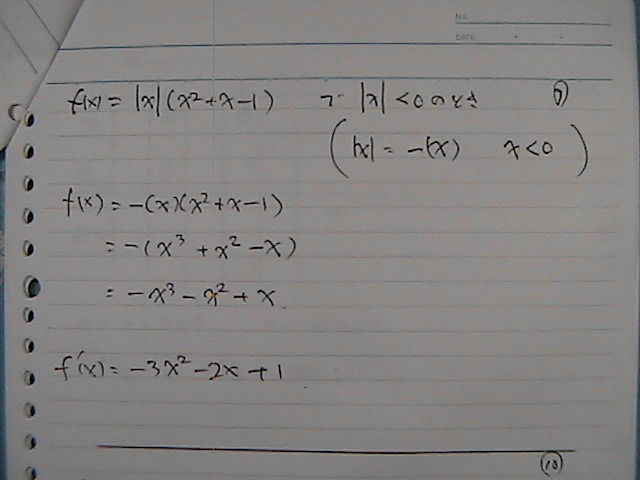 NO.
DATE
f(x) = |x|(x²+x-1) で |x|<0のとき ⑨
( |x| = -(x) x<0 )
f(x) = -(x)(x²+x-1)
= -(x³+x²-x)
= -x³-x²+x.
f'(x) = -3x²-2x+1
⑩